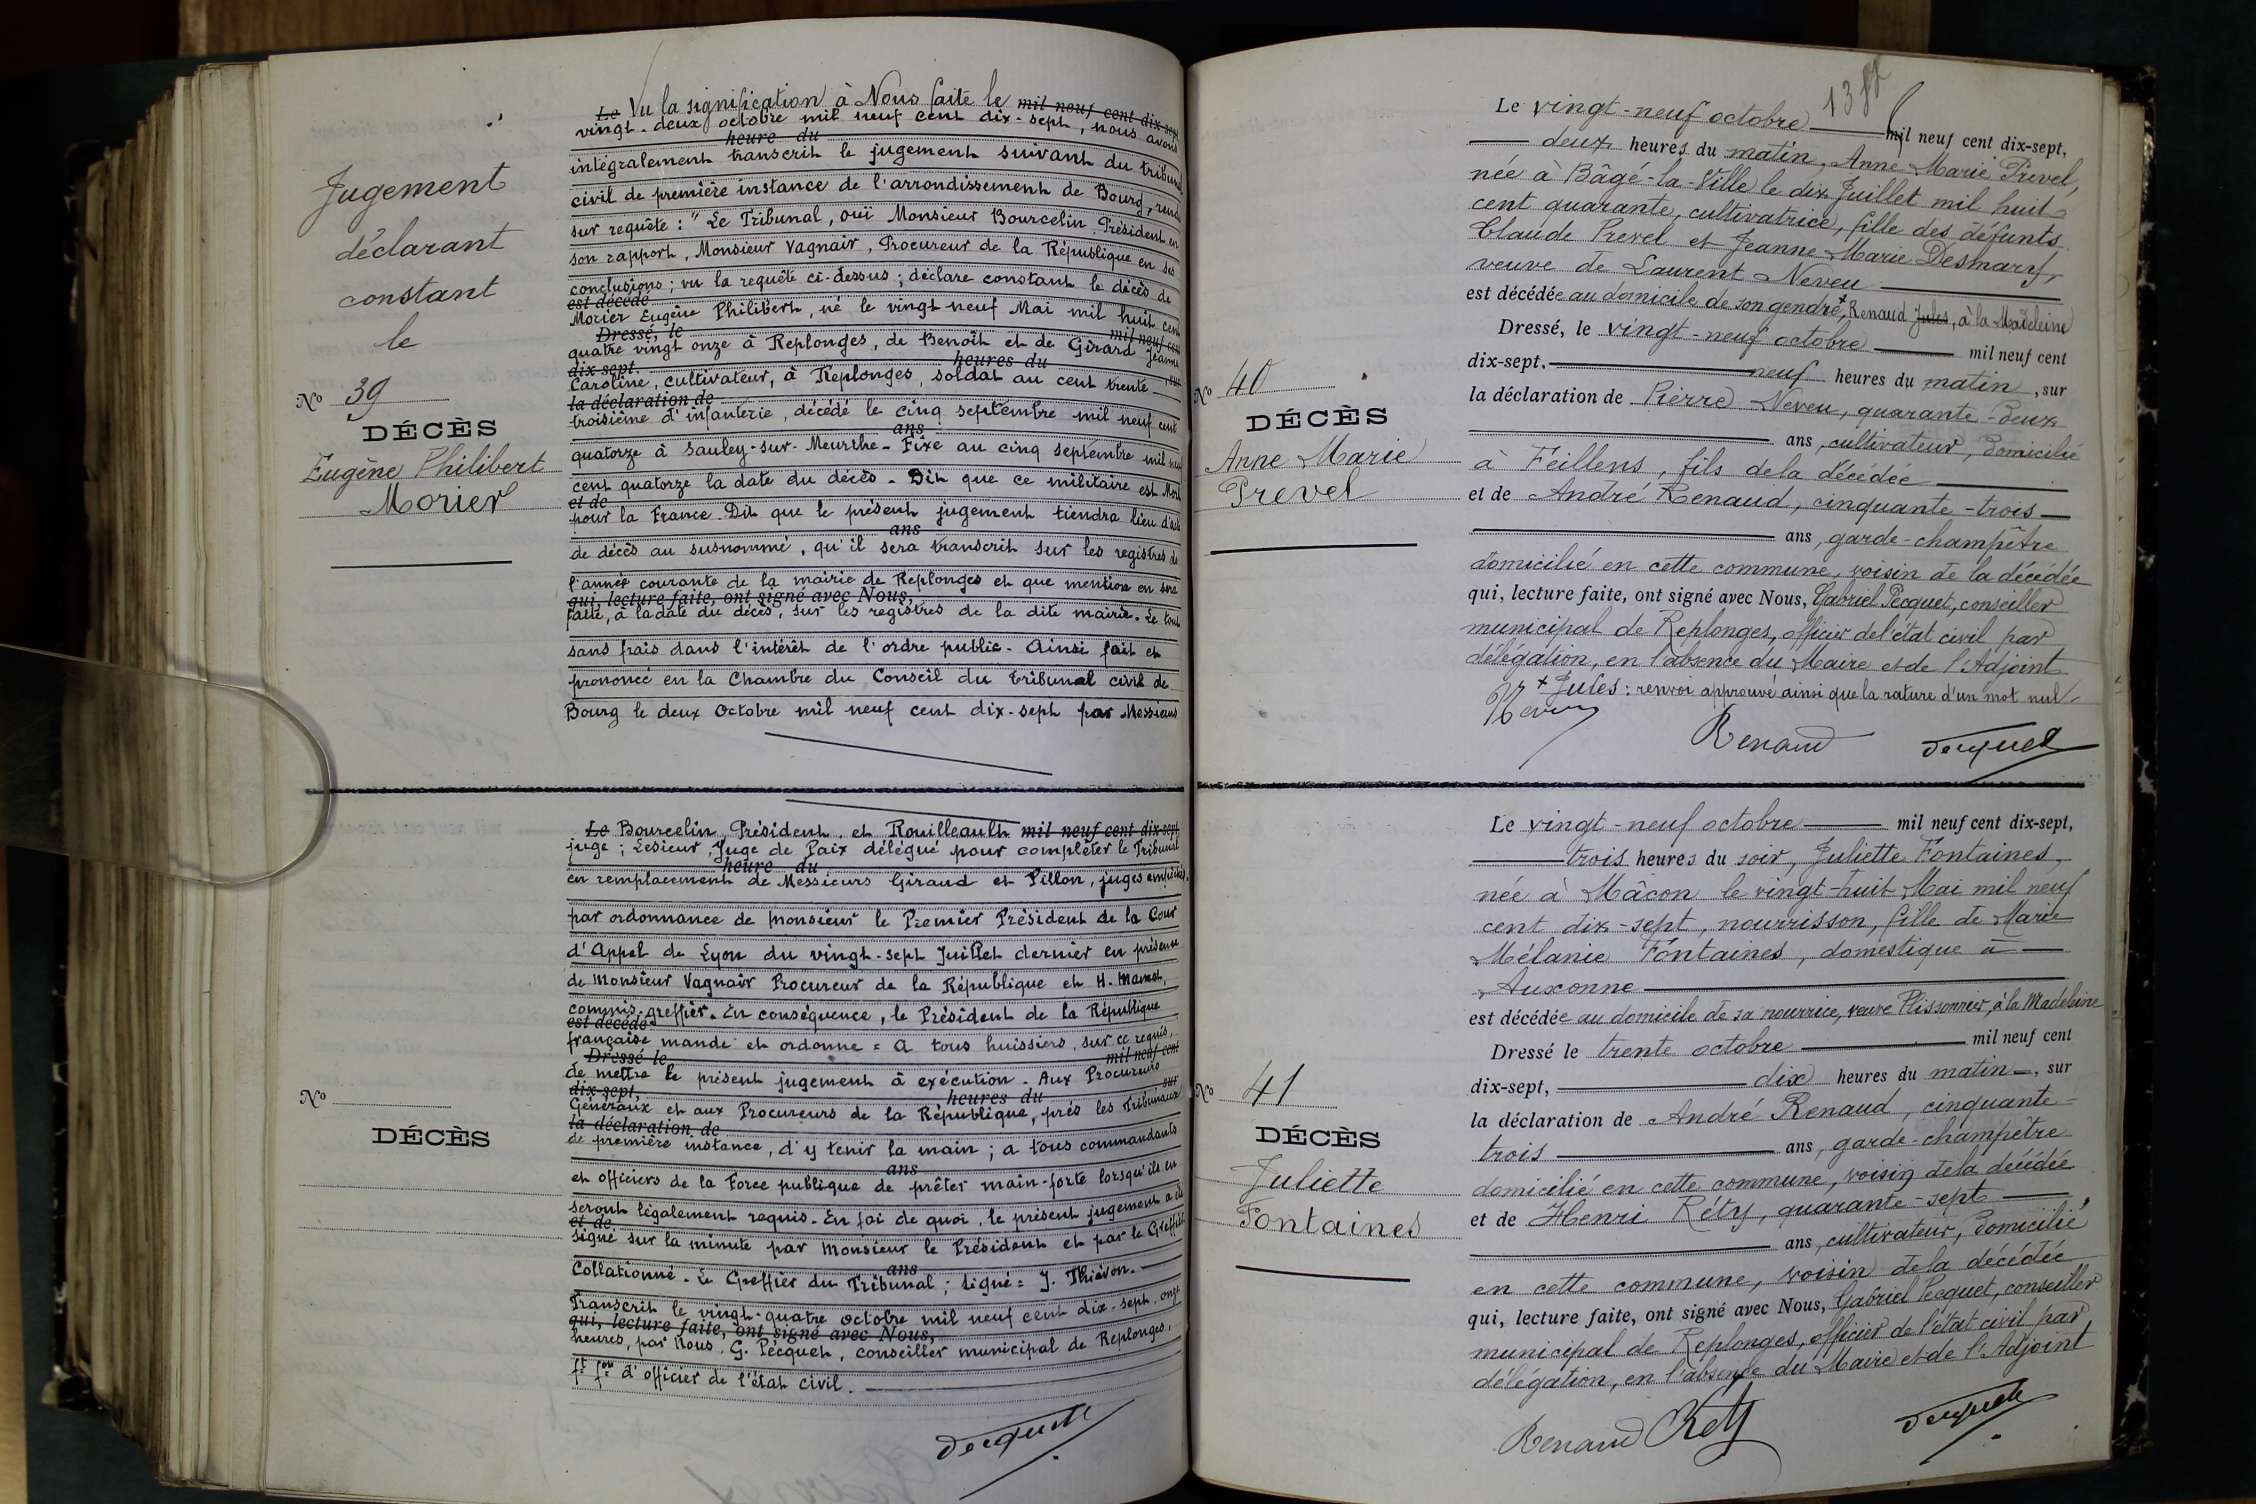 Jugement
déclarant
constant
le
No 39
DÉCÈS
Eugène Philibert
Morier
Le Vu la signification à Nous faite le mil neuf cent dix-sept
vingt-deux octobre mil neuf cent dix-sept, nous avons
heure du
intégralement transcrit le jugement suivant du tribunal
civil de première instance de l'arrondissement de Bourg, rendu
sur requête : " Le Tribunal, ouï Monsieur Bourcelin Président en
son rapport, Monsieur Vagnair, Procureur de la République en ses
conclusions ; vu la requête ci-dessus ; déclare constant le décès de
est décédé
Morier Eugène Philibert, né le vingt-neuf Mai mil huit cent
Dressé, le mil neuf cent
quatre vingt onze à Replonges, de Benoît et de Girard Jeanne
dix-sept. heures du sur
Caroline, cultivateur, à Replonges, soldat au cent trente
la déclaration de
troisième d'infanterie, décédé le cinq septembre mil neuf cent
ans
quatorze à Sauley-sur-Meurthe - Fixe au cinq septembre mil neuf
cent quatorze la date du décès. Dit que ce militaire est Mort
et de
pour la France. Dit que le présent jugement tiendra lieu d'acte
ans
de décès au susnommé, qu'il sera transcrit sur les registres de
l'année courante de la mairie de Replonges et que mention en sera
qui, lecture faite, ont signé avec Nous,
faite, à la date du décès, sur les registres de la dite mairie. Le tout
sans frais dans l'intérêt de l'ordre public. Ainsi fait et
prononcé en la Chambre du Conseil du tribunal civil de
Bourg le deux Octobre mil neuf cent dix-sept par Messieurs
No
DÉCÈS
Le Bourcelin, Président, et Rouilleault mil neuf cent dix-sept
juge ; Lesieur, Juge de Paix délégué pour compléter le Tribunal
heure du
en remplacement de Messieurs Giraud et Pillon, juges empêchés
par ordonnance de Monsieur le Premier Président de la Cour
d'Appel de Lyon du vingt-sept Juillet dernier en présence
de Monsieur Vagnair Procureur de la République et H. Mamet,
commis-greffier. En conséquence, le Président de la République
est décédé
française mande et ordonne = A tous huissiers, sur ce requis,
Dressé le mil neuf cent
de mettre le présent jugement à exécution. Aux Procureurs
dix-sept, heures du sur
Généraux et aux Procureurs de la République, près les Tribunaux
la déclaration de
de première instance, d'y tenir la main ; à tous commandants
ans
et officiers de la Force publique de prêter main-forte lorsqu'ils en
seront légalement requis. En foi de quoi, le présent jugement a été
et de
signé sur la minute par Monsieur le Président et par le Greffier
ans
Collationné. Le Greffier du Tribunal ; signé = J. Thiévon.
Transcrit le vingt-quatre octobre mil neuf cent dix-sept, onze
qui, lecture faite, ont signé avec Nous,
heures, par Nous, G. Pecquet, conseiller municipal de Replonges,
ft fon d'officier de l'état civil.
Pecquet
1388
No 40
DÉCÈS
Anne Marie
Prevel
Le vingt-neuf octobre mil neuf cent dix-sept,
deux heures du matin, Anne Marie Prevel,
née à Bâgé-la-Ville le dix Juillet mil huit
cent quarante, cultivatrice, fille des défunts
Claude Prevel et Jeanne-Marie Desmary,
veuve de Laurent Neveu
est décédée au domicile de son gendre+, Renaud Jules, à la Madeleine
Dressé, le vingt-neuf octobre mil neuf cent
dix-sept. neuf heures du matin, sur
la déclaration de Pierre Neveu, quarante-deux
ans, cultivateur, domicilié
à Feillens, fils de la décédée
et de André Renaud, cinquante-trois
ans, garde-champêtre
domicilié en cette commune, voisin de la décédée
qui, lecture faite, ont signé avec Nous, Gabriel Pecquet, conseiller
municipal de Replonges, officier de l'état civil par
délégation, en l'absence du Maire et de l'Adjoint
+ Jules : renvoi approuvé ainsi que la rature d'un mot nul
Neveu Renaud Pecquet
No 41
DÉCÈS
Juliette
Fontaines
Le vingt-neuf octobre mil neuf cent dix-sept,
trois heures du soir, Juliette Fontaines,
née à Mâcon le vingt-huit Mai mil neuf
cent dix-sept, nourrisson, fille de Marie
Mélanie Fontaines, domestique à
Auxonne
est décédée au domicile de sa nourrice, veuve Plissonnier, à la Madeleine
Dressé le trente octobre mil neuf cent
dix-sept, dix heures du matin, sur
la déclaration de André Renaud, cinquante-
trois ans, garde-champêtre
domicilié en cette commune, voisin de la décédée
et de Henri Réty, quarante-sept
ans, cultivateur, domicilié
en cette commune, voisin de la décédée
qui, lecture faite, ont signé avec Nous, Gabriel Pecquet, conseiller
municipal de Replonges, officier de l'état civil par
délégation, en l'absence du Maire et de l'Adjoint
Renaud Réty Pecquet